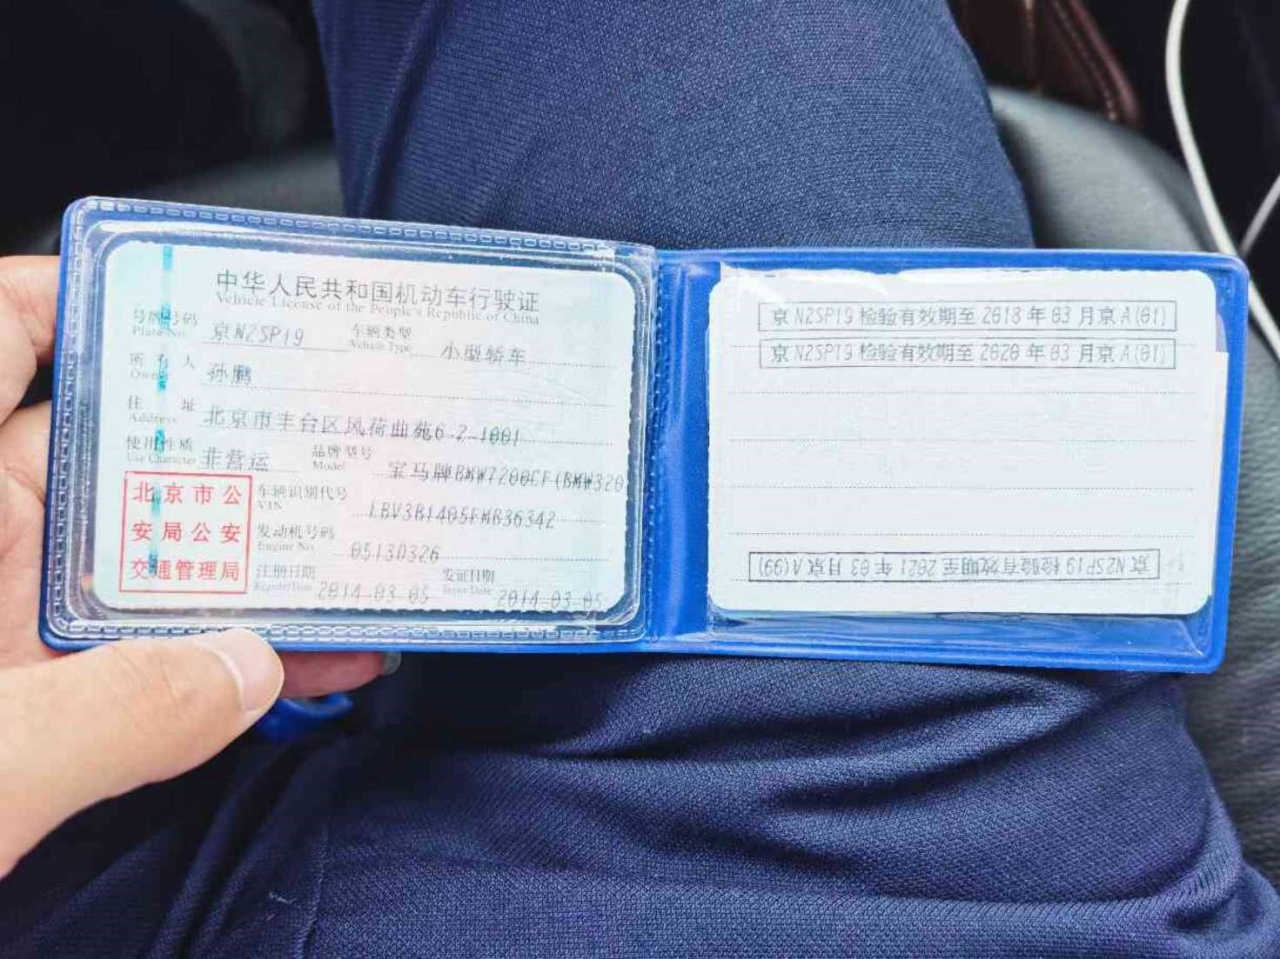 中华人民共和国机动车行驶证
Vehicle License of the People's Republic of China
号牌号码 京N2SP19 车辆类型 小型轿车
Plate No. Vehicle Type
所有人 孙鹏
Owner
住址 北京市丰台区风荷曲苑6-2-1001
Address
使用性质 非营运 品牌型号 宝马牌BMW7200CF(BMW320
Use Character Model
北京市公
安局公安
交通管理局
车辆识别代号 LBV3B1405EMB36342
VIN
发动机号码 0513D326
Engine No.
注册日期 2014-03-05 发证日期 2014-03-05
Register Date Issue Date
京N2SP19检验有效期至2018年03月京A(01)
京N2SP19检验有效期至2020年03月京A(01)
京N2SP19检验有效期至2021年03月京A(99)